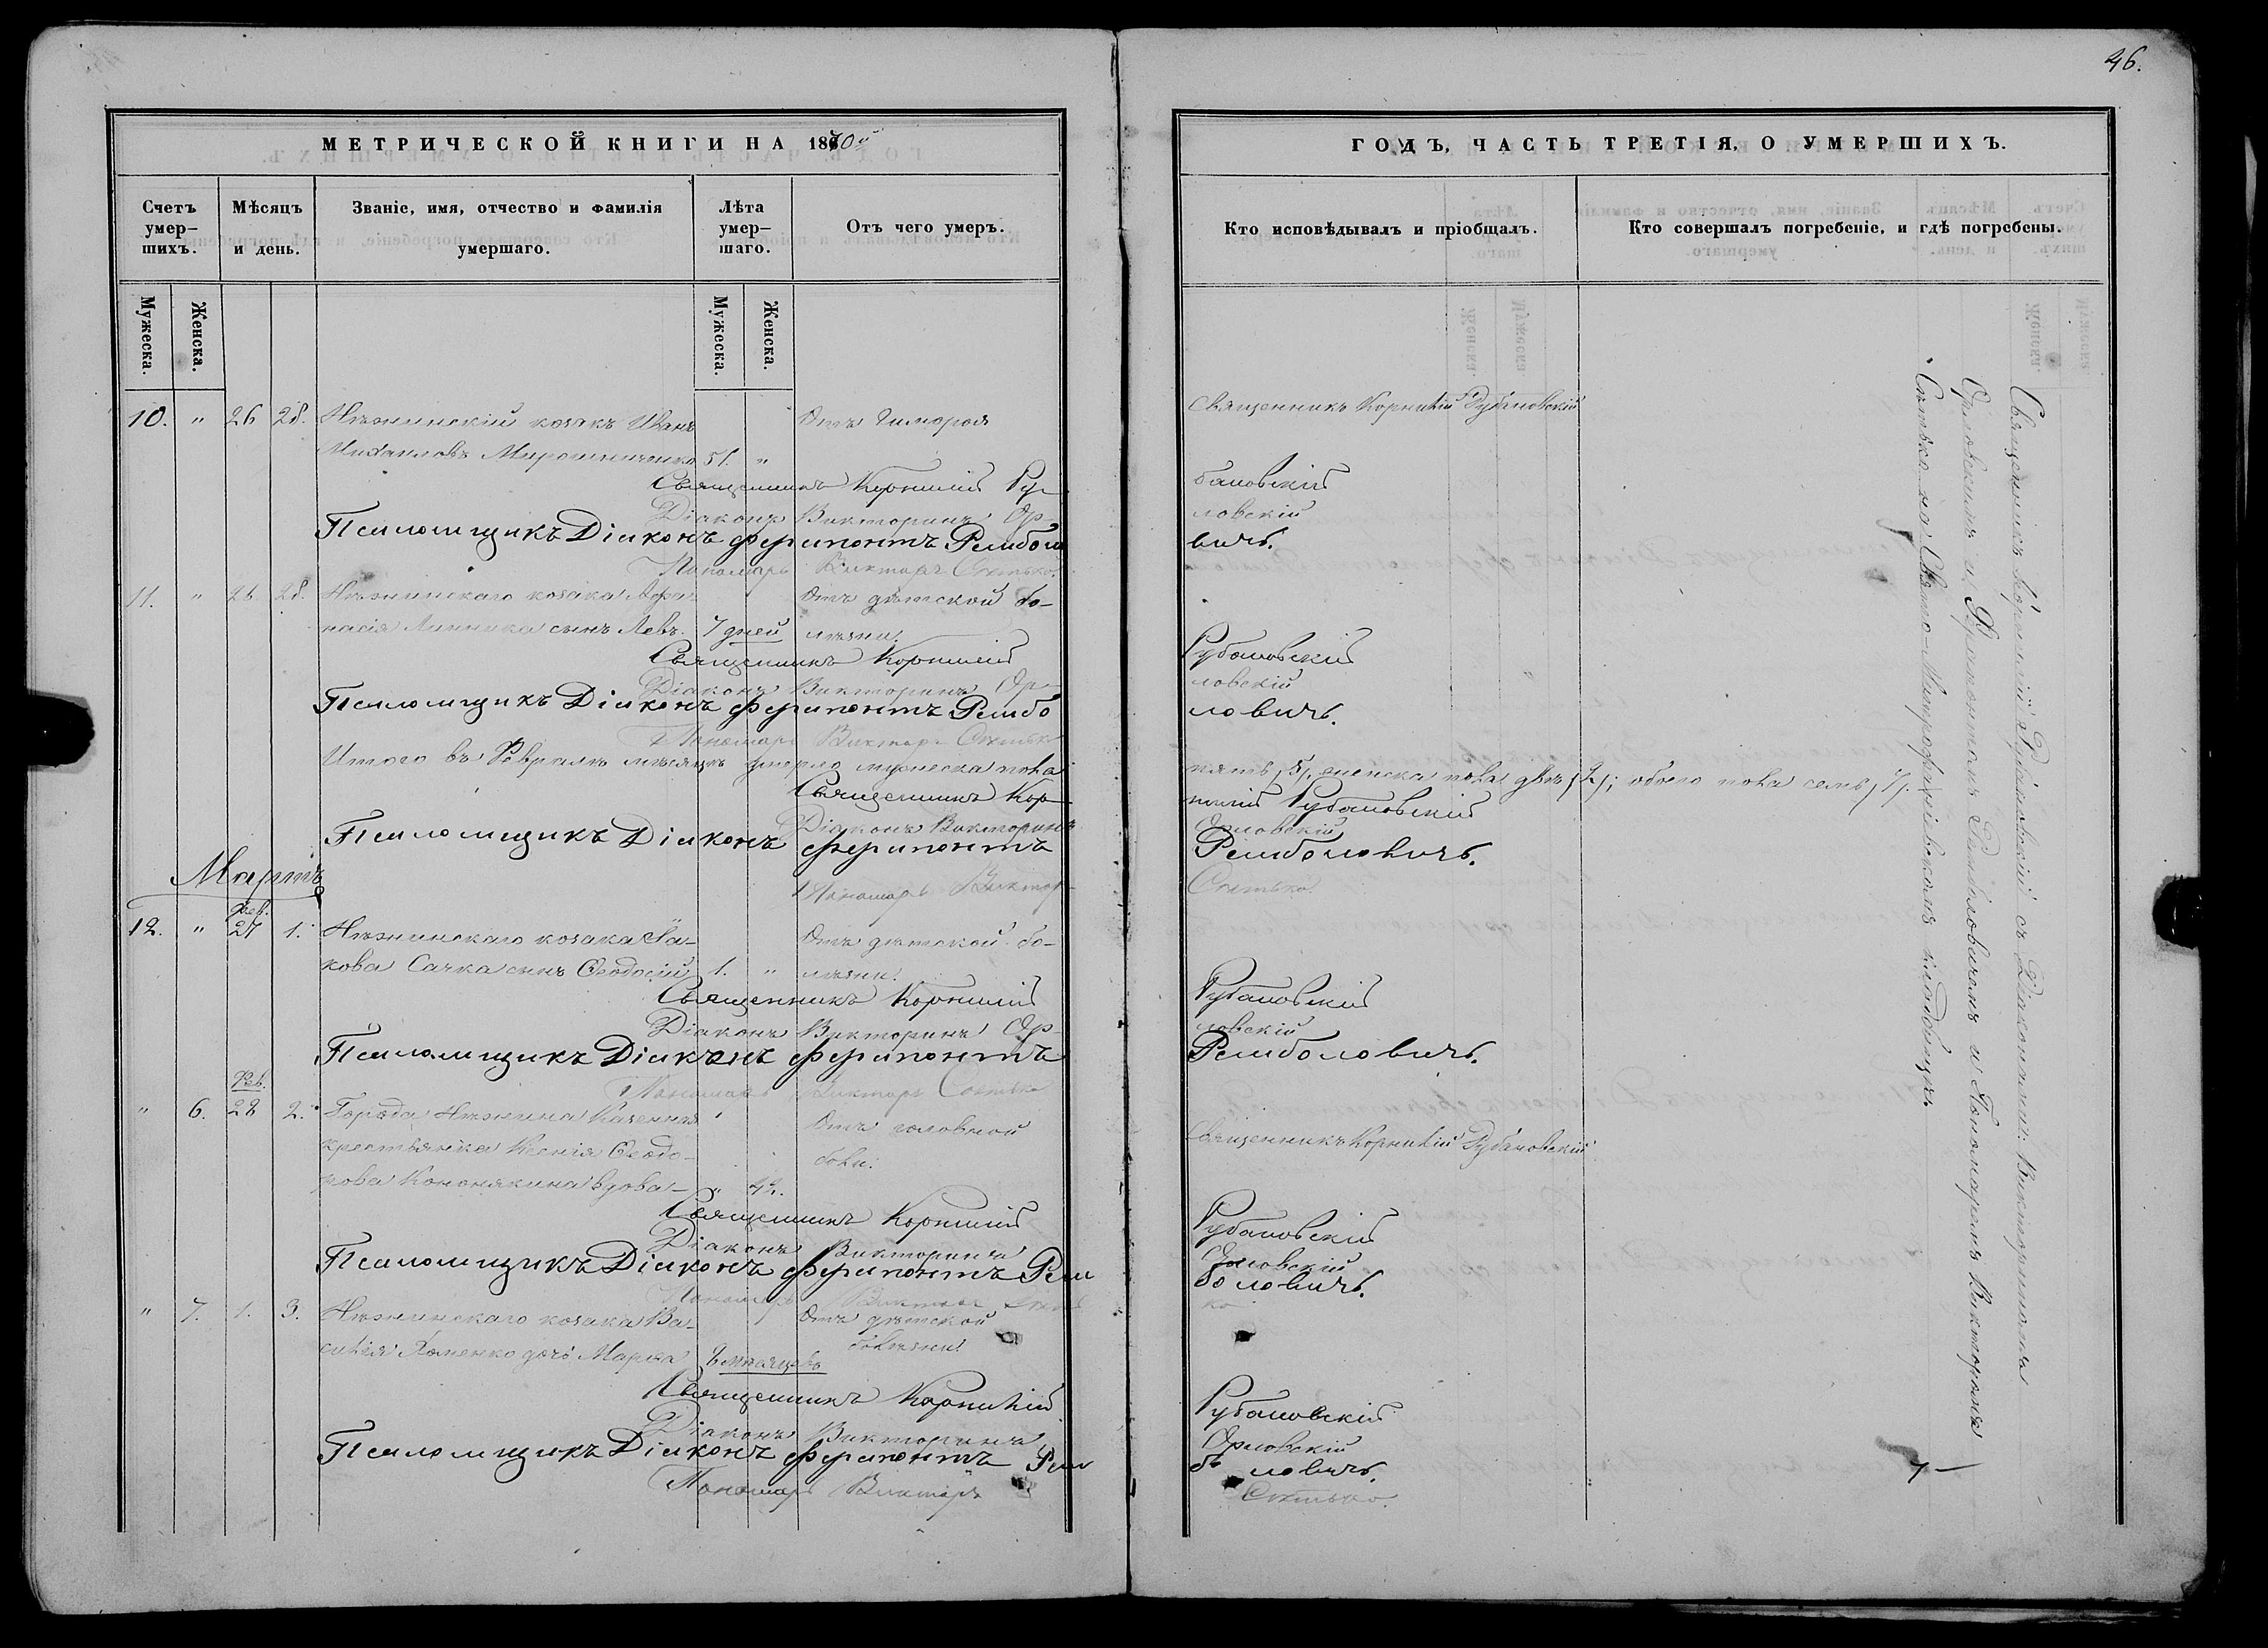 46.
МЕТРИЧЕСКОЙ КНИГИ НА 1870й
ГОДЪ, ЧАСТЬ ТРЕТІЯ, О УМЕРШИХЪ.
Счетъ умер-шихъ.
Мѣсяцъ и день.
Званіе, имя, отчество и фамилія умершаго.
Лѣта умер-шаго.
Отъ чего умеръ.
Кто исповѣдывалъ и пріобщалъ.
Кто совершалъ погребеніе, и гдѣ погребены.
Мужеска. Женска. Мужеска. Женска.
10. " 26 28. Нѣжинскій козакъ Иванъ
Михаиловъ Мирошниченко 51. "
Священникъ Корнилій Рубановскій
Священникъ Корнилій Рубановскій
Діаконъ Викторинъ Орловскій
Псаломщикъ Діаконъ Ферапонтъ Рембаловичъ.
Пономарь Викторъ
11. " 26 28. Нѣжинскаго козака Афа-
насія сынъ Левъ. 7 дней
Отъ дѣтской бо-
лѣзни.
Священникъ Корнилій Рубановскій
Діаконъ Викторинъ Орловскій
Псаломщикъ Діаконъ Ферапонтъ Рембаловичъ.
Пономарь Викторъ
Итого въ Февралѣ мѣсяцѣ умерло мужеска пола пять /5/, женска пола двѣ /2/; обоего пола семь /7/.
Священникъ Корнилій Рубановскій
Діаконъ Викторинъ Орловскій
Псаломщикъ Діаконъ Ферапонтъ Рембаловичъ.
Пономарь Викторъ
Мартъ
12. " Фев. 27 1. Нѣжинскаго козака Іа-
кова Сачка сынъ Ѳеодосій 1. "
Отъ дѣтской бо-
лѣзни.
Священникъ Корнилій Рубановскій
Діаконъ Викторинъ Орловскій
Псаломщикъ Діаконъ Ферапонтъ Рембаловичъ.
Пономарь Викторъ
" 6. Фев. 28 2. Города Нѣжина Казенная
крестьянка Ксенія Ѳеодо-
рова вдова "
Отъ головной
боли.
Священникъ Корнилій Рубановскій
Священникъ Корнилій Рубановскій
Діаконъ Викторинъ Орловскій
Псаломщикъ Діаконъ Ферапонтъ Рембаловичъ.
Пономарь Викторъ
" 7. 1. 3. Нѣжинскаго козака Ва-
силія Хоменко дочь Марѳа мѣсяцевъ
Отъ дѣтской
болѣзни.
Священникъ Корнилій Рубановскій
Діаконъ Викторинъ Орловскій
Псаломщикъ Діаконъ Ферапонтъ Рембаловичъ.
Пономарь Викторъ
Священникъ Корнилій Рубановскій съ Діакономъ Викториномъ
Орловскимъ и Ферапонтомъ Рембаловичемъ и Пономаремъ Викторомъ
на кладбищѣ